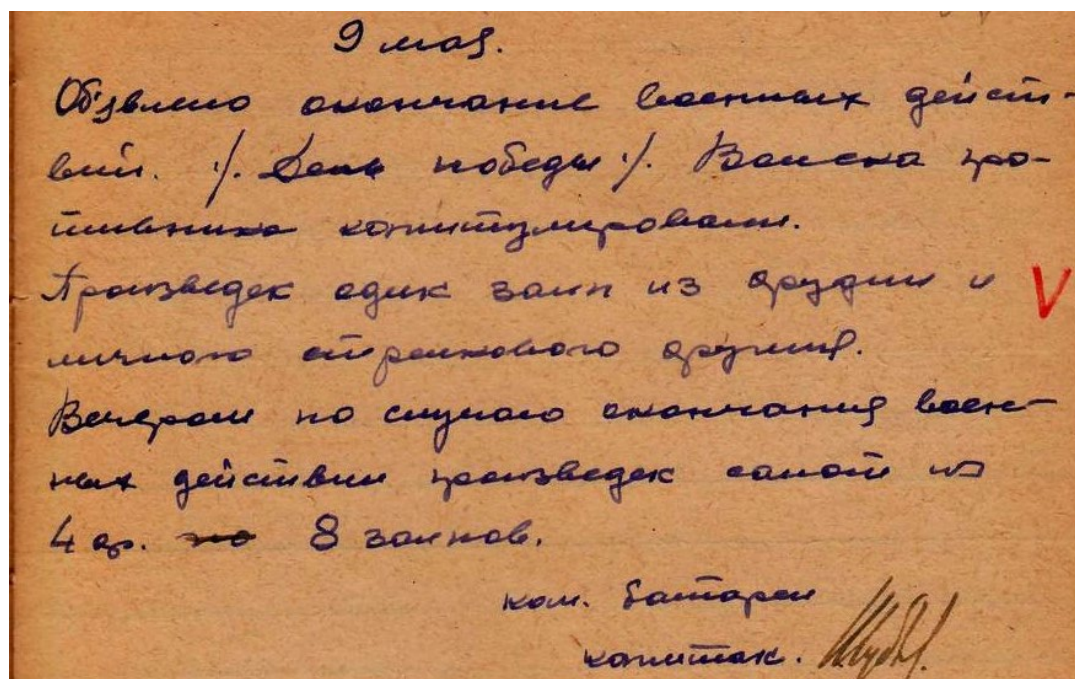 9 мая.
Объявлено окончание военных дейст-
вий. ·/. День победы ·/. Войска про-
тивника капитулировали.
Произведен один залп из орудии и V
личного стрелкового оружия.
Вечером по случаю окончания воен-
ных действии произведен салют из
4 ор. 8 залпов.
ком. батареи
капитан.